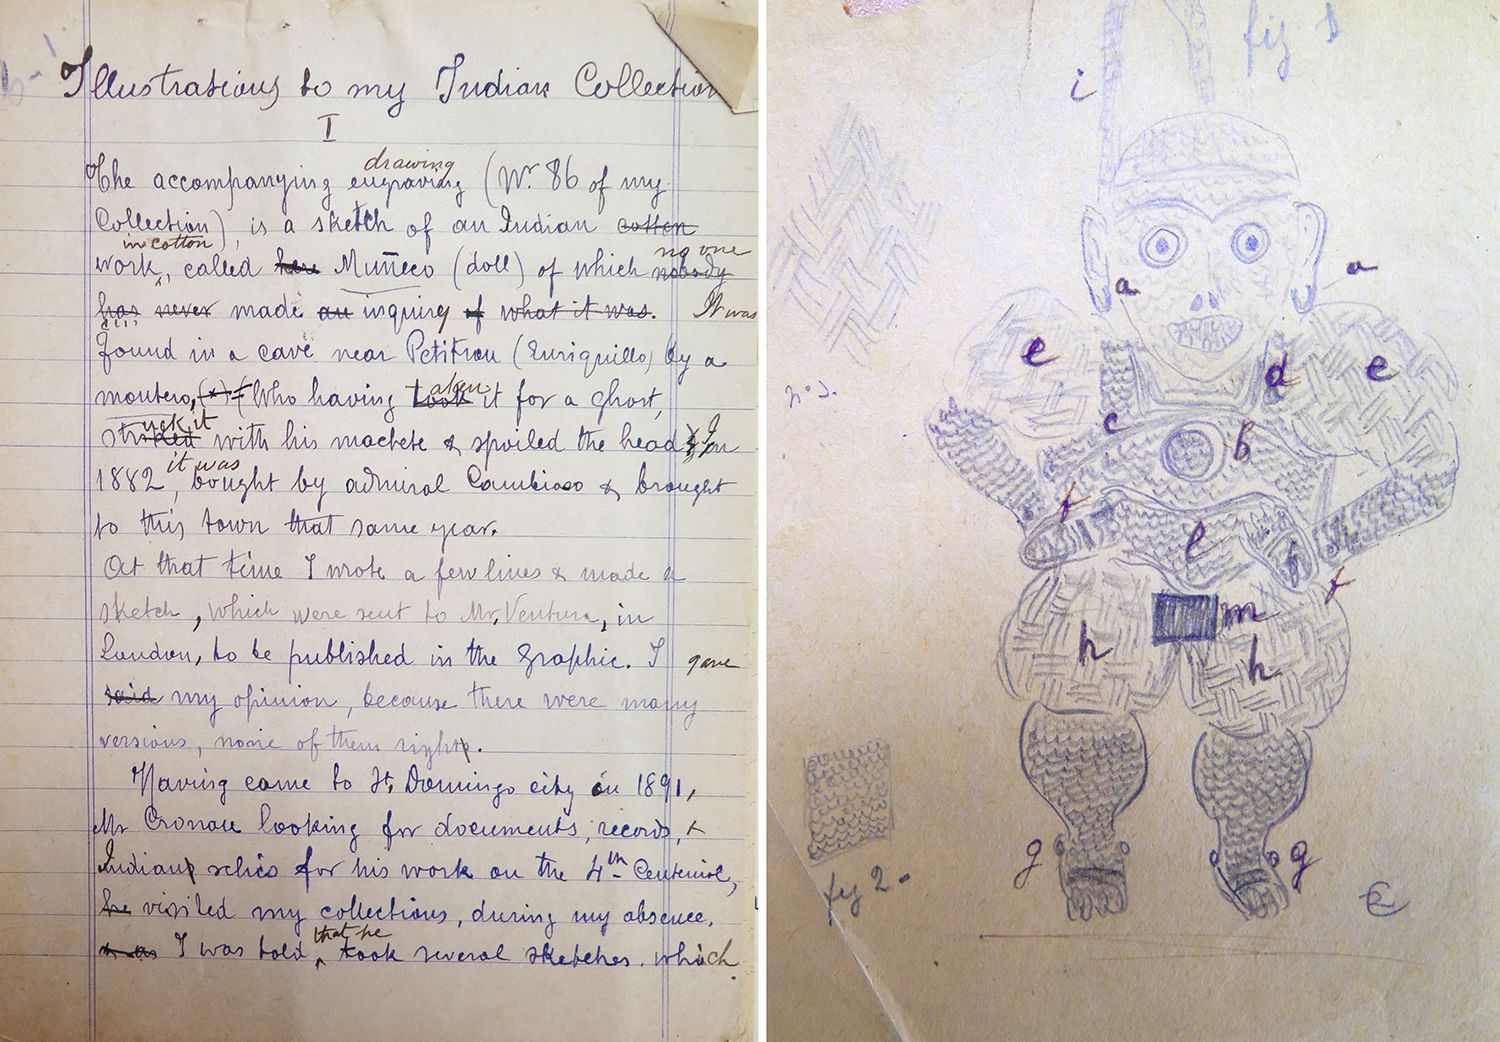 b-1
Illustrations to my Indian Collection
I
drawing
The accompanying engraving (Nr. 86 of my
Collection), is a sketch of an Indian cotten
in cotton no one
work, called here Muñeco (doll) of which nobody
has never made an inquiry of what it was. It was
found in a cave near Petitrou (Enriquillo) by a
montero, (*) (Who having took aken it for a ghost,
struck it
with his machete & spoiled the head & In
it was
1882, bought by admiral Cambiaso & brought
to this town that same year.
At that time I wrote a few lines & made a
sketch, which were sent to Mr. Ventura, in
London, to be published in the Graphic. I gave
said my opinion, because there were many
versions, none of them right.
Having come to St. Domingo city in 1891,
Mr Cronau looking for documents, records, &
Indian relics for his work on the 4th Centenial,
he visited my collections, during my absence.
that he
I was told, took several sketches. which
fig 1
i
a
a
e
d
e
c
B
f
l
f
m
h
h
g
g
fig 2-